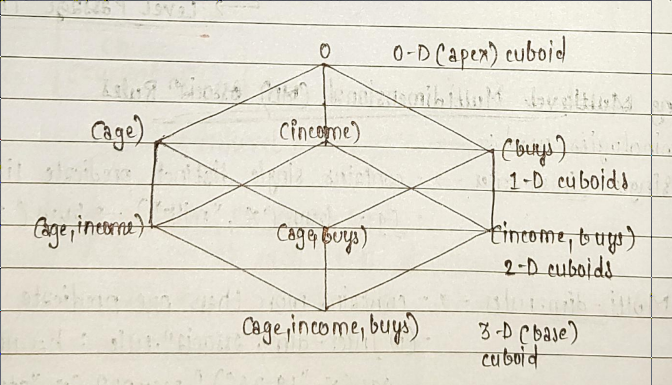 0 0-D (apex) cuboid
(age) (income) (buys)
1-D cuboids
(age, income) (age, buys) (income, buys)
2-D cuboids
(age, income, buys) 3-D (base)
cuboid